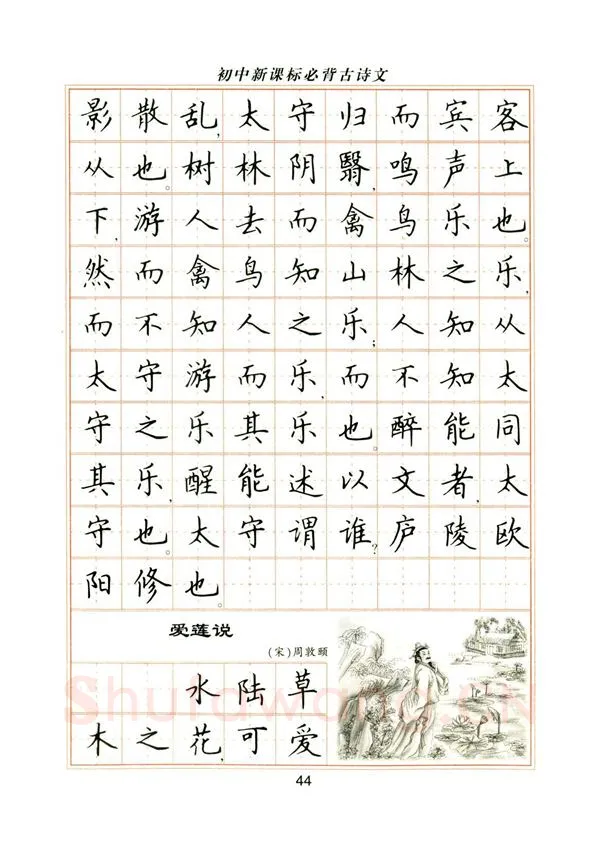 初中新课标必背古诗文
影散乱,太守归而宾客
从也。树林阴翳,鸣声上
下,游人去而禽鸟乐也。
然而禽鸟知山林之乐,
而不知人之乐;人知从
太守游而乐,而不知太
守之乐其乐也。醉能同
其乐,醒能述以文者,太
守也。太守谓谁?庐陵欧
阳修也。
爱莲说
(宋)周敦颐
水陆草
木之花,可爱
Shufawang.CN
44